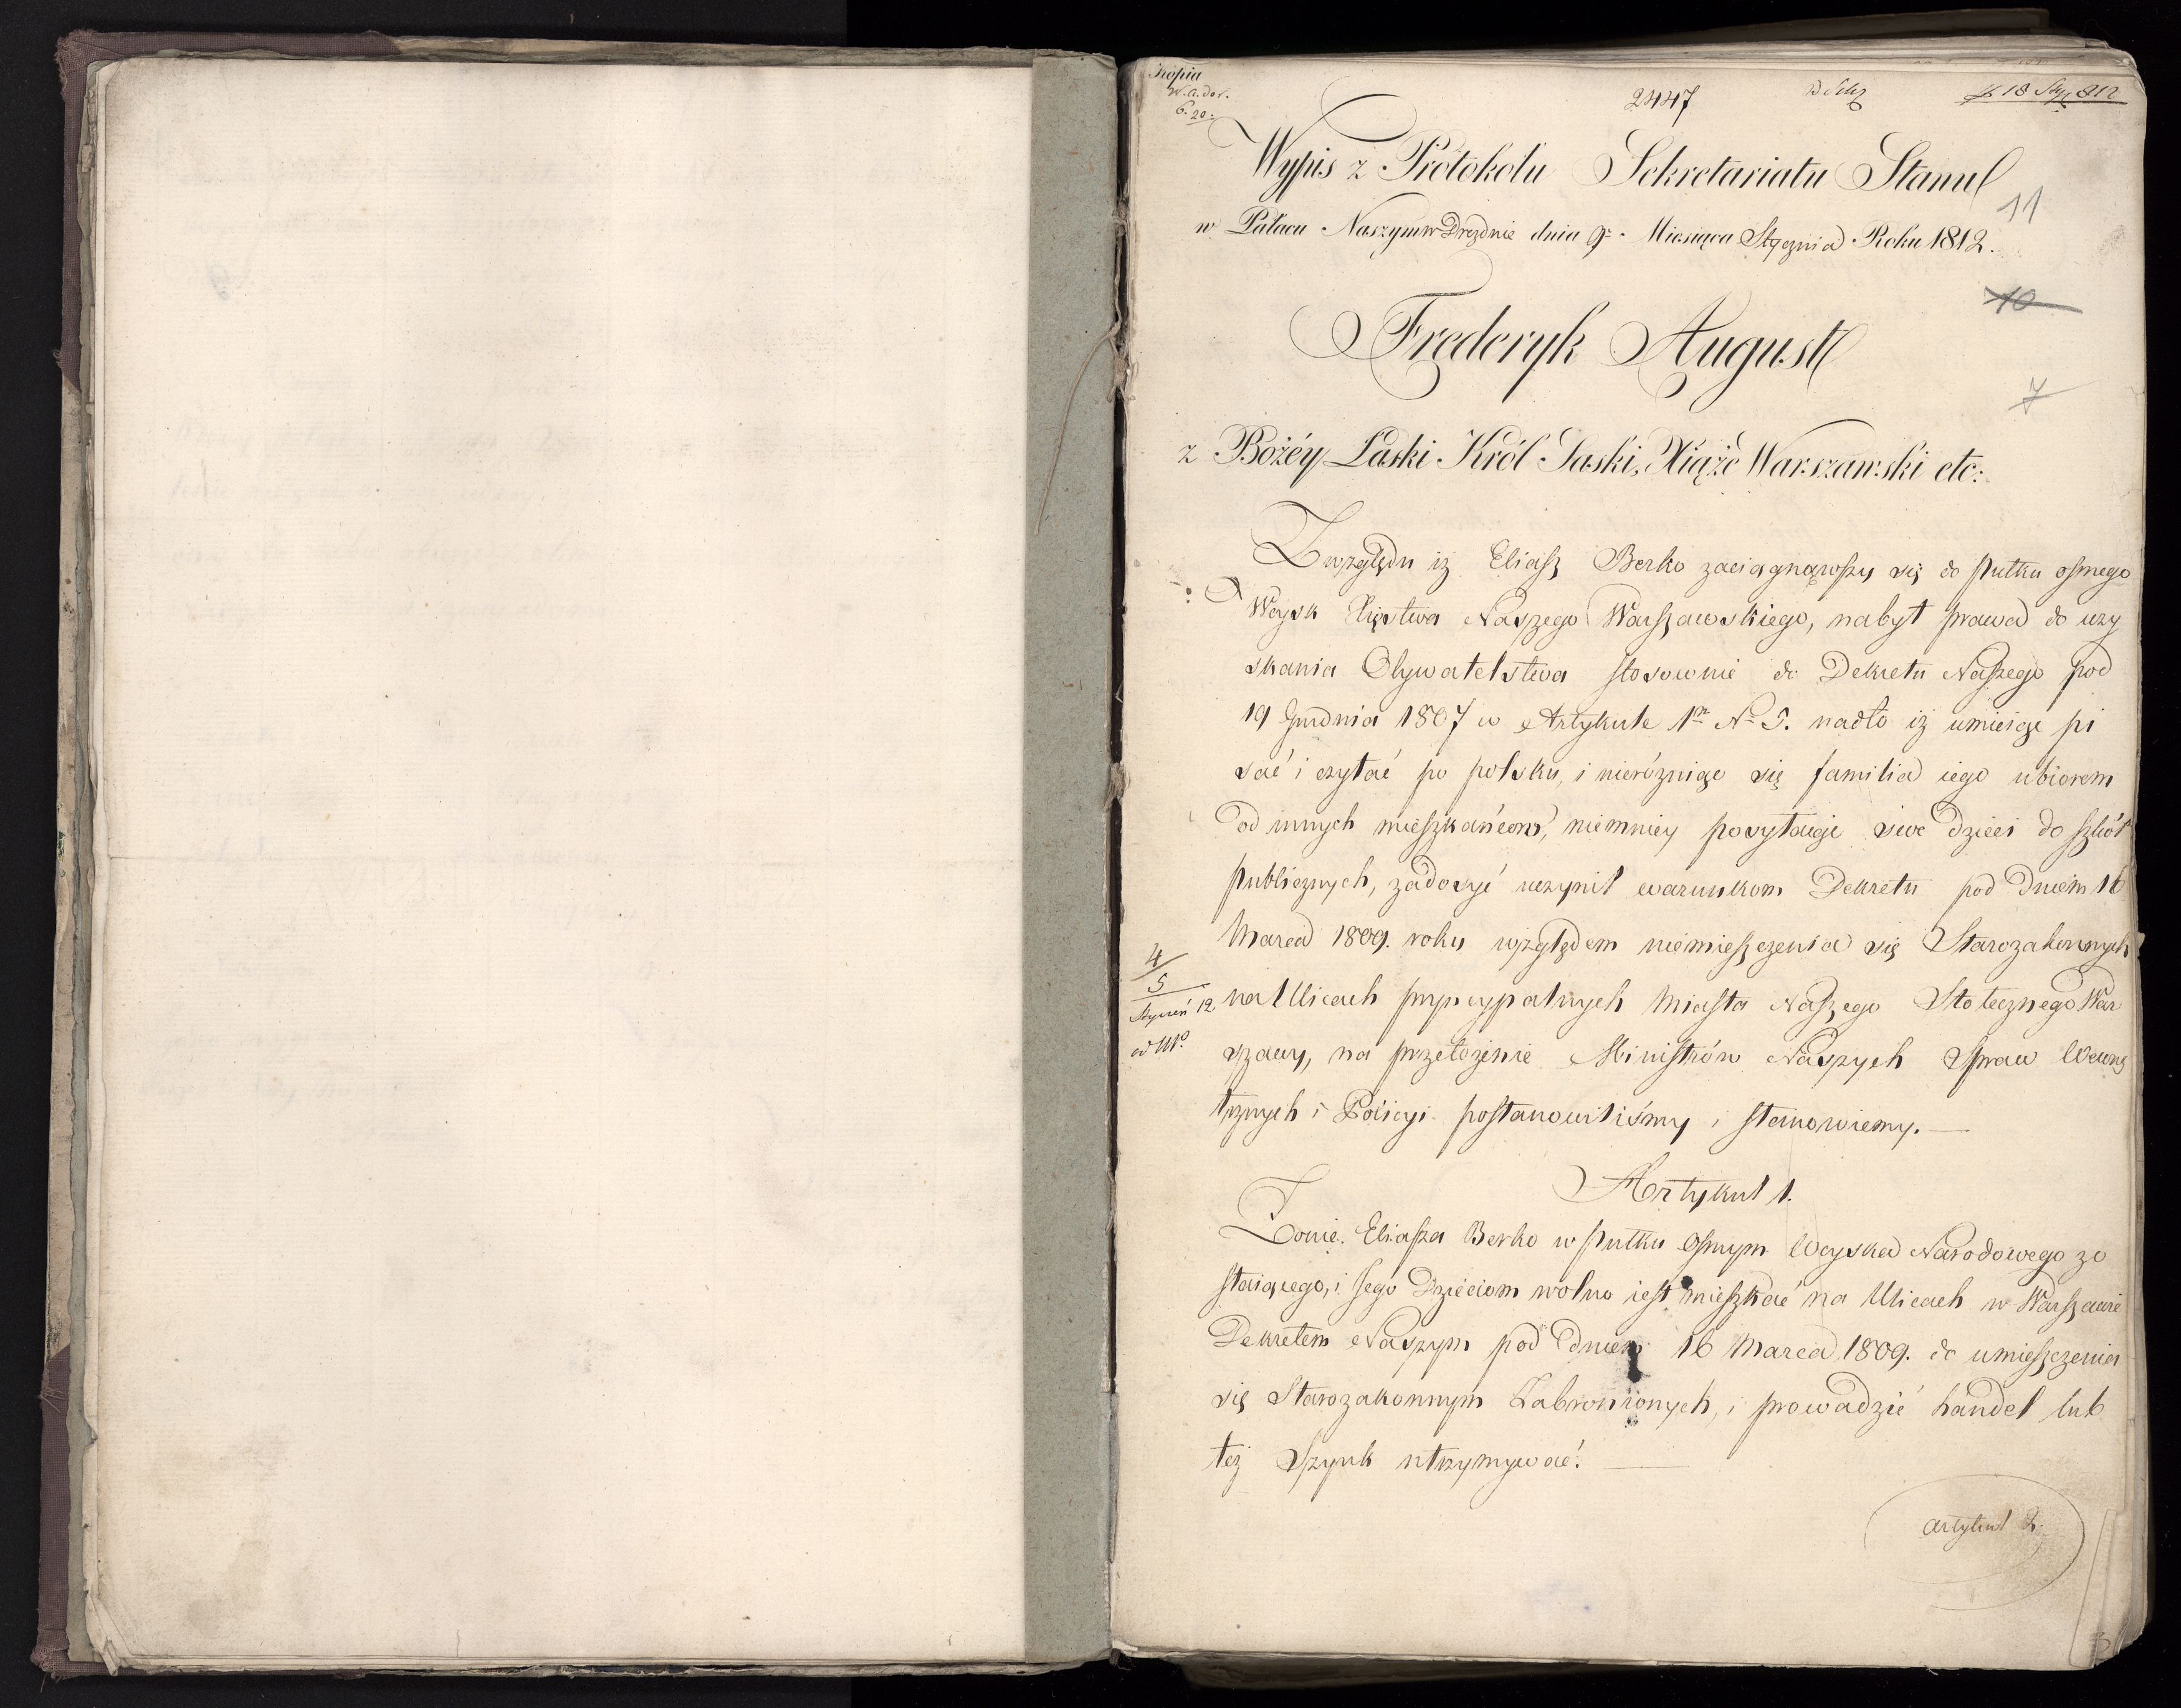 Kopia
W. a. dor.
6. 20:
2447
18 Sty 812
Wypis z Protokołu Sekretariatu Stanu
11
w Pałacu Naszym w Dreznie dnia 9. Miesiąca Stycznia Roku 1812.
10
Frederyk August
7
z Bożéy Łaski Król Saski, Xiąże Warszawski etc:
Z względu iż Eliasz Berko zaciągnąwszy się do pułku osmego
Woysk Xięstwa Naszego Warszawskiego, nabył prawa do uzy
skania Obywatelstwa stosownie do Dekretu Naszego pod
19 Grudnia 1807 w Artykule 1m No 5. nadto iż umieiąc pi
sać i czytać po polsku, i nieróżniąc się familia iego ubiorem
od innych mieszkańców, niemniey posyłaiąc swe dzieci do szkół
publicznych, zadosyć uczynił warunkom Dekretu pod dniem 16
Marca 1809. roku względem niemieszczenia się Starozakonnych
4/5
Styczeń 12
na Ulicach pryncypalnych Miasta Naszego Stołecznego War
szawy, na przełożenie Ministrów Naszych Spraw Wewnę
trznych i Policyi postanowiliśmy i stanowiemy.
Artykuł 1.
Żonie Eliasza Berko w pułku Osmym Woyska Narodowego zo
staiącego, i Jego Dzieciom wolno iest mieszkać na Ulicach w Warszawie
Dekretem Naszym pod dniem 16 Marca 1809. do umieszczenia
się Starozakonnym Zabronionych, i prowadzić handel lub
też Szynk utrzymywać.
Artykuł 2.